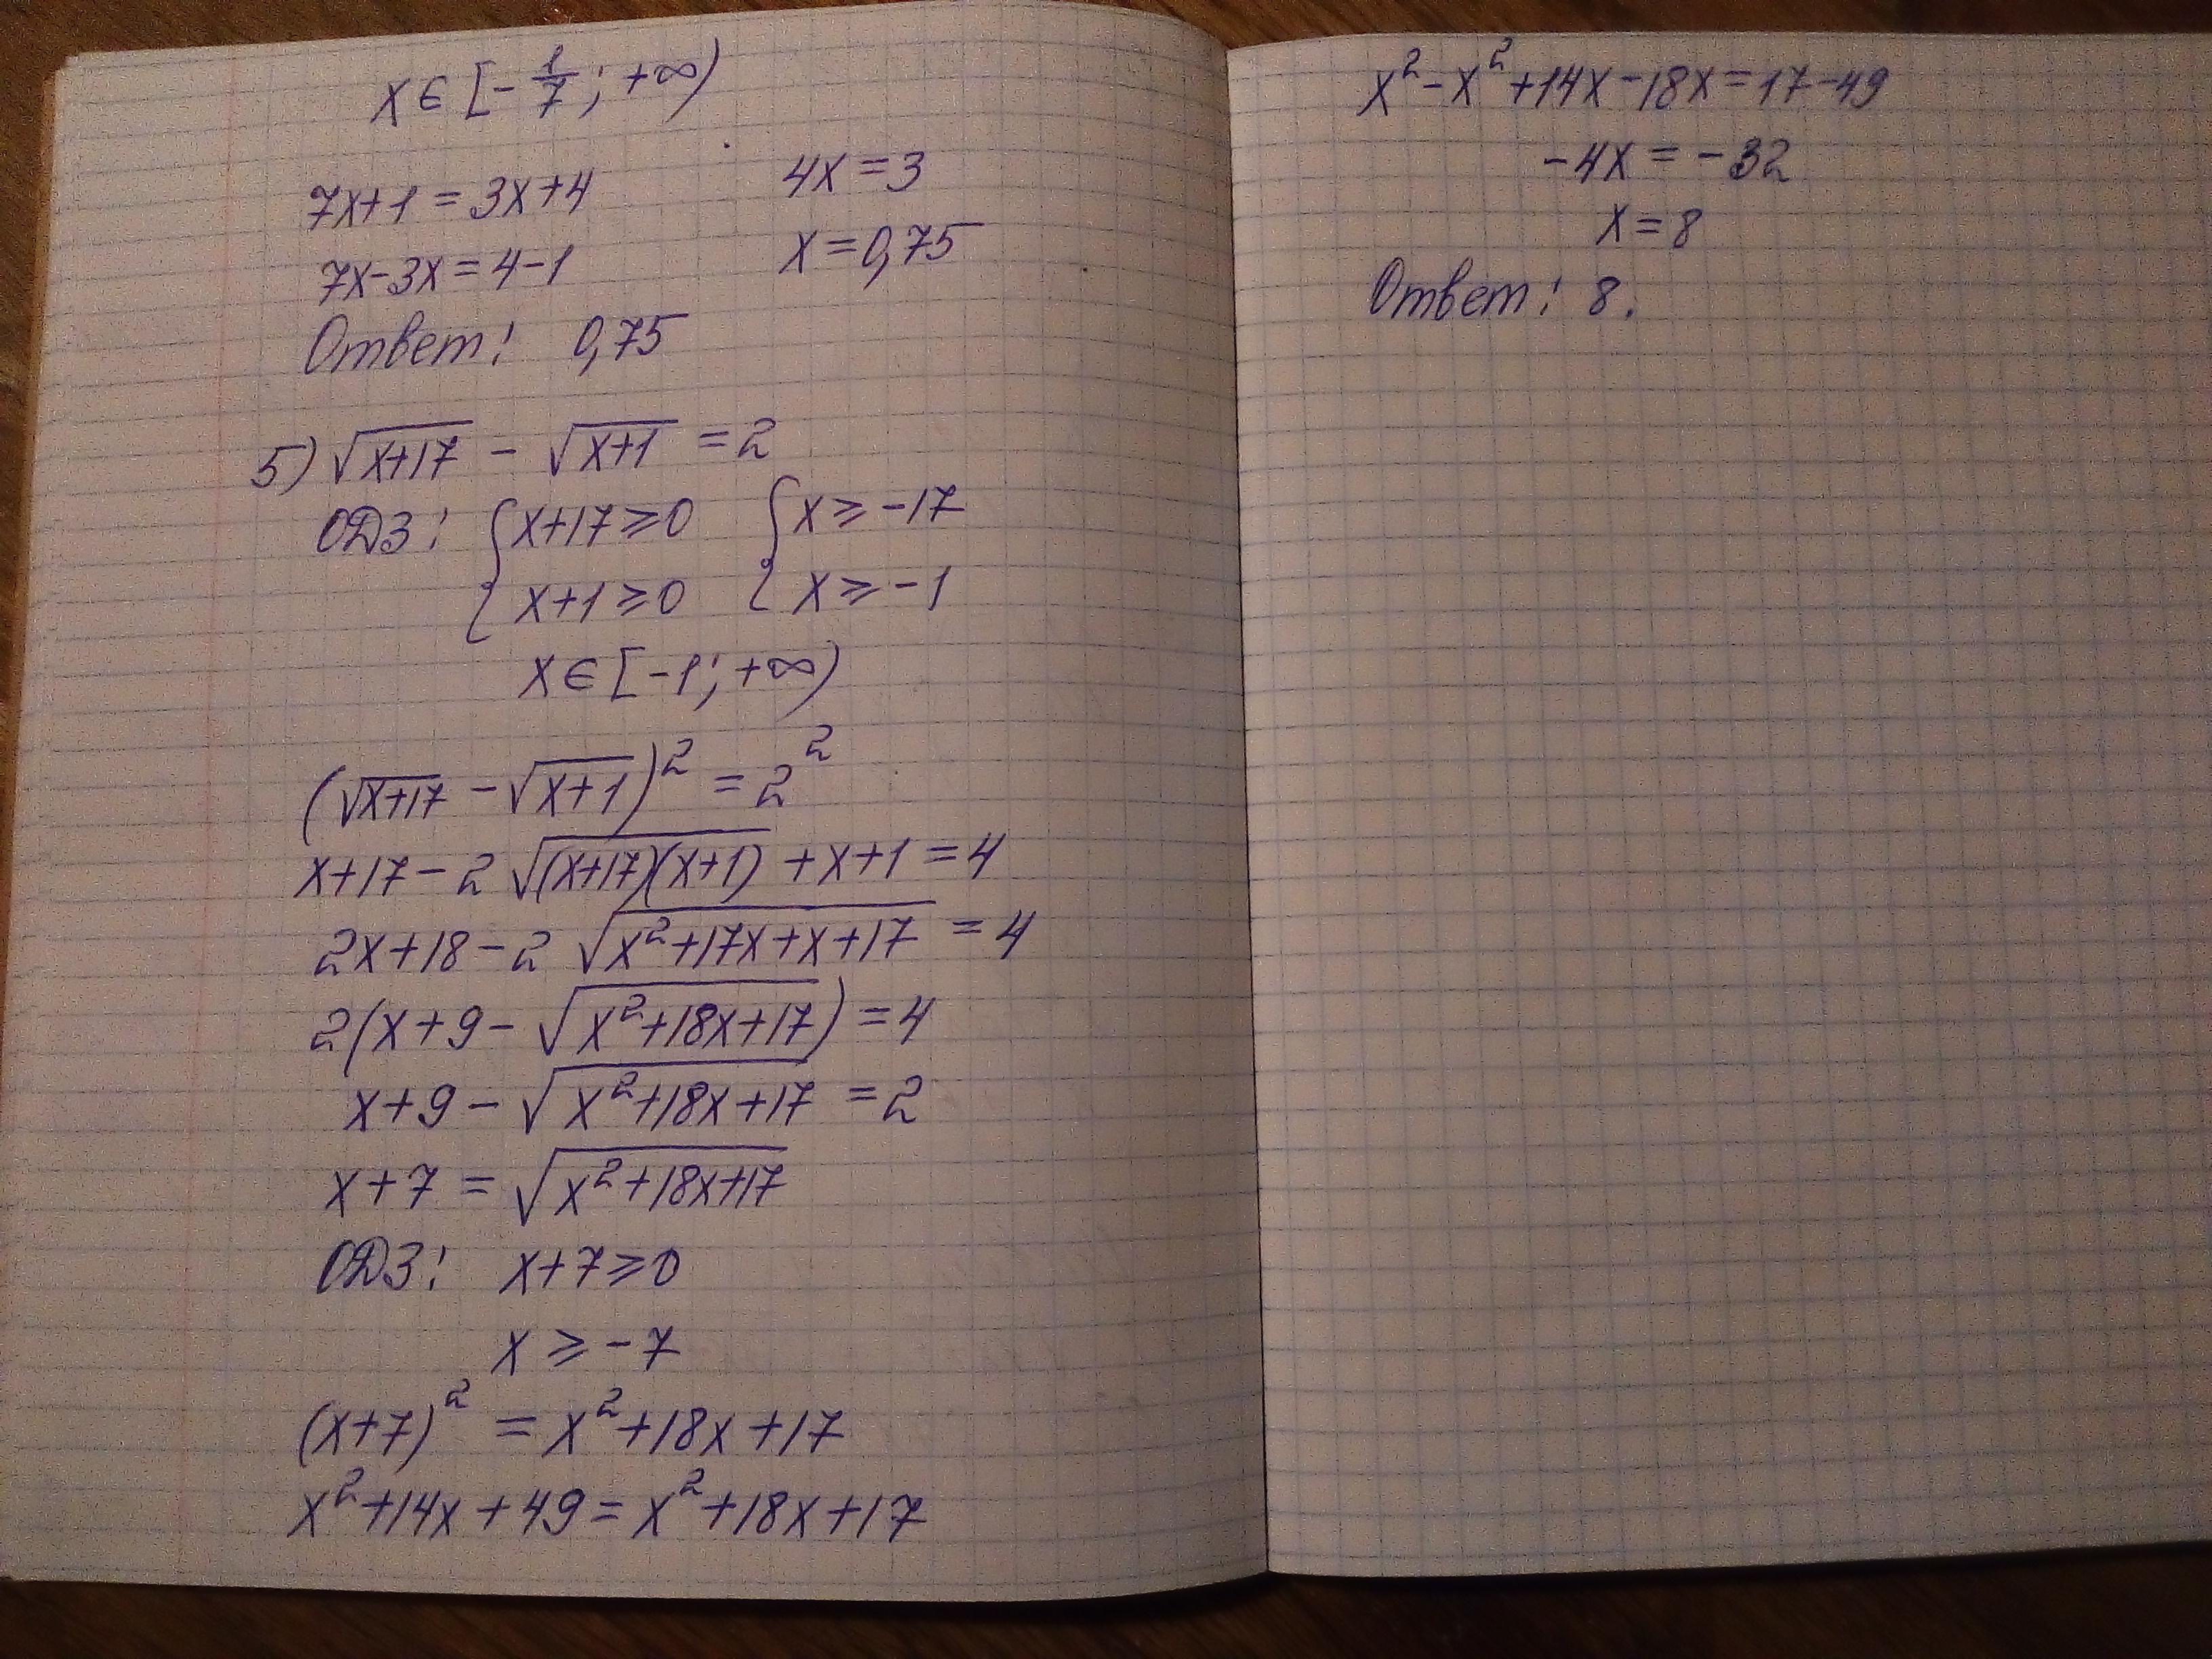 x ∈ [-1/7; +∞)
7x+1 = 3x+4
4x = 3
7x-3x = 4-1
x = 0,75
Ответ: 0,75
5) √(x+17) - √(x+1) = 2
ОДЗ: { x+17 ≥ 0 { x ≥ -17
x+1 ≥ 0 x ≥ -1
x ∈ [-1; +∞)
(√(x+17) - √(x+1))² = 2²
x+17 - 2√((x+17)(x+1)) + x+1 = 4
2x+18 - 2√(x²+17x+x+17) = 4
2(x+9 - √(x²+18x+17)) = 4
x+9 - √(x²+18x+17) = 2
x+7 = √(x²+18x+17)
ОДЗ: x+7 ≥ 0
x ≥ -7
(x+7)² = x²+18x+17
x²+14x+49 = x²+18x+17
x²-x²+14x-18x = 17-49
-4x = -32
x = 8
Ответ: 8.